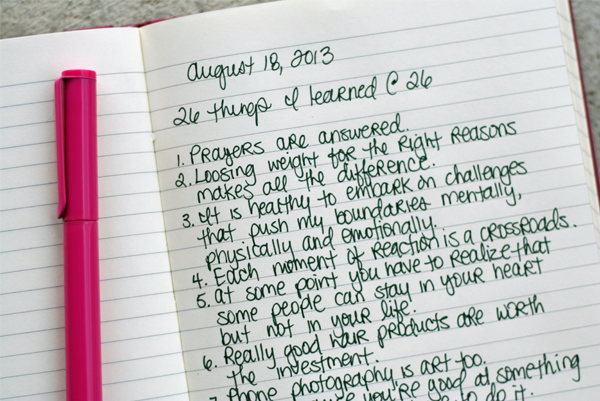 August 18, 2013
26 things I learned @ 26
1. Prayers are answered.
2. Loosing weight for the right reasons
makes all the difference.
3. It is healthy to embark on challenges
that push my boundaries mentally,
physically and emotionally.
4. Each moment of reaction is a crossroads.
5. at some point you have to realize that
some people can stay in your heart
but not in your life.
6. Really good hair products are worth
the investment.
7. Phone photography is art too.
you're good at something
to do it.